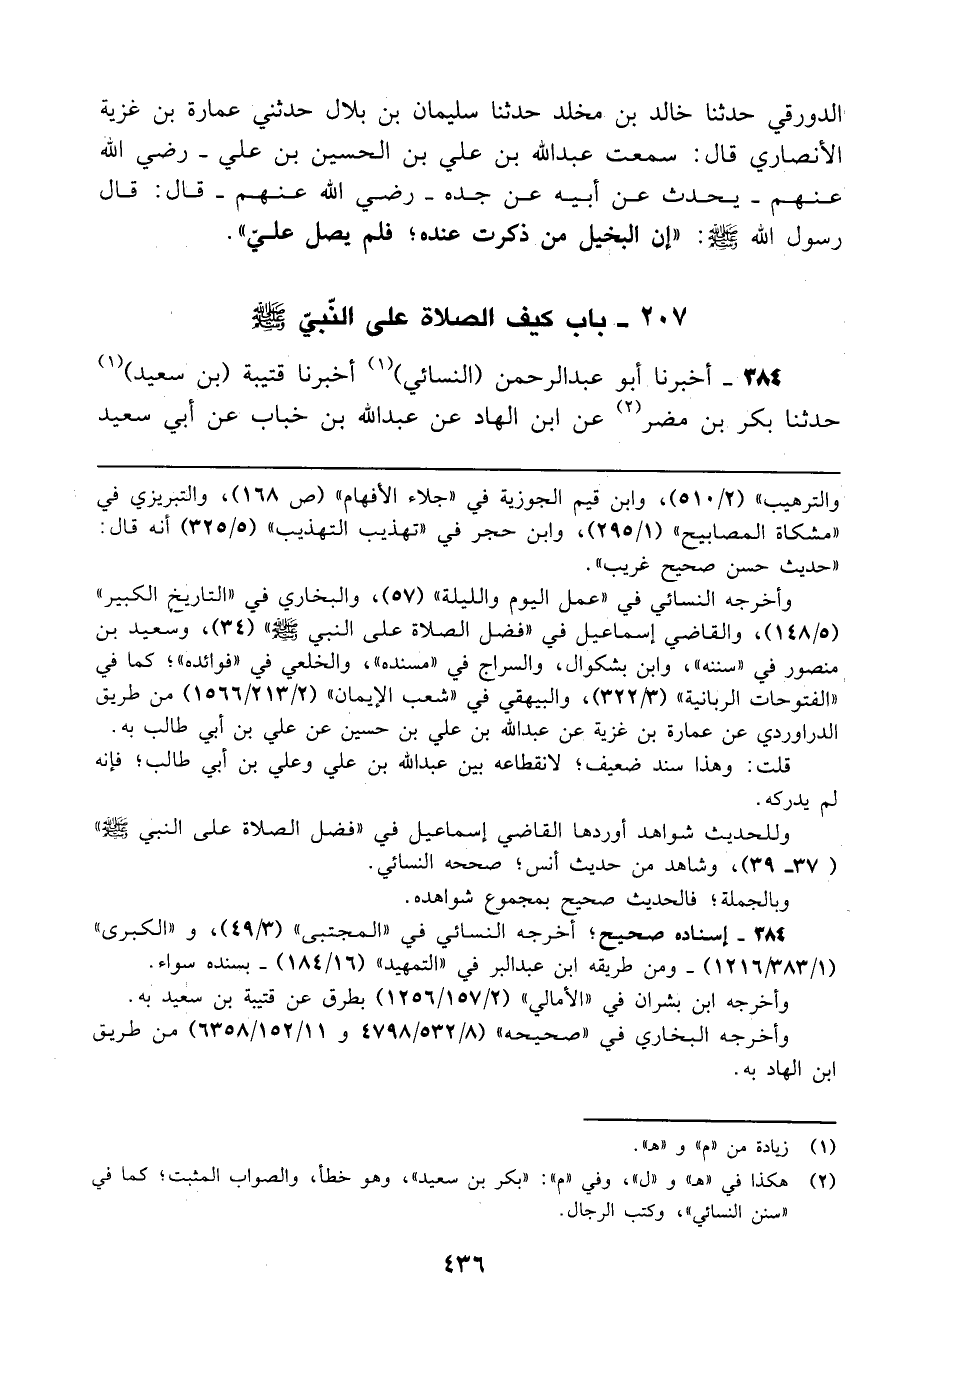 الدورقي حدثنا خالد بن مخلد حدثنا سليمان بن بلال حدثني عمارة بن غزية
الأنصاري قال: سمعت عبدالله بن علي بن الحسين بن علي ـ رضي الله
عنهم ـ يحدث عن أبيه عن جده ـ رضي الله عنهم ـ قال: قال
رسول الله ﷺ: «إن البخيل من ذكرت عنده؛ فلم يصل عليّ».
٢٠٧ ـ باب كيف الصلاة على النّبيّ ﷺ
٣٨٤ ـ أخبرنا أبو عبدالرحمن (النسائي)(١) أخبرنا قتيبة (بن سعيد)(١)
حدثنا بكر بن مضر(٢) عن ابن الهاد عن عبدالله بن خباب عن أبي سعيد
والترهيب» (٥١٠/٢)، وابن قيم الجوزية في «جلاء الأفهام» (ص ١٦٨)، والتبريزي في
«مشكاة المصابيح» (٢٩٥/١)، وابن حجر في «تهذيب التهذيب» (٣٢٥/٥) أنه قال:
«حديث حسن صحيح غريب».
وأخرجه النسائي في «عمل اليوم والليلة» (٥٧)، والبخاري في «التاريخ الكبير»
(١٤٨/٥)، والقاضي إسماعيل في «فضل الصلاة على النبي ﷺ» (٣٤)، وسعيد بن
منصور في «سننه»، وابن بشكوال، والسراج في «مسنده»، والخلعي في «فوائده»؛ كما في
«الفتوحات الربانية» (٣٢٢/٣)، والبيهقي في «شعب الإيمان» (١٥٦٦/٢١٣/٢) من طريق
الدراوردي عن عمارة بن غزية عن عبدالله بن علي بن حسين عن علي بن أبي طالب به.
قلت: وهذا سند ضعيف؛ لانقطاعه بين عبدالله بن علي وعلي بن أبي طالب؛ فإنه
لم يدركه.
وللحديث شواهد أوردها القاضي إسماعيل في «فضل الصلاة على النبي ﷺ»
( ٣٧ـ ٣٩)، وشاهد من حديث أنس؛ صححه النسائي.
وبالجملة؛ فالحديث صحيح بمجموع شواهده.
٣٨٤ ـ إسناده صحيح؛ أخرجه النسائي في «المجتبى» (٤٩/٣)، و «الكبرى»
(١٢١٦/٣٨٣/١) ـ ومن طريقه ابن عبدالبر في «التمهيد» (١٨٤/١٦) ـ بسنده سواء.
وأخرجه ابن بشران في «الأمالي» (١٢٥٦/١٥٧/٢) بطرق عن قتيبة بن سعيد به.
وأخرجه البخاري في «صحيحه» (٤٧٩٨/٥٣٢/٨ و ٦٣٥٨/١٥٢/١١) من طريق
ابن الهاد به.
(١) زيادة من «م» و «هـ».
(٢) هكذا في «هـ» و «ل»، وفي «م»: «بكر بن سعيد»، وهو خطأ، والصواب المثبت؛ كما في
«سنن النسائي»، وكتب الرجال.
٤٣٦